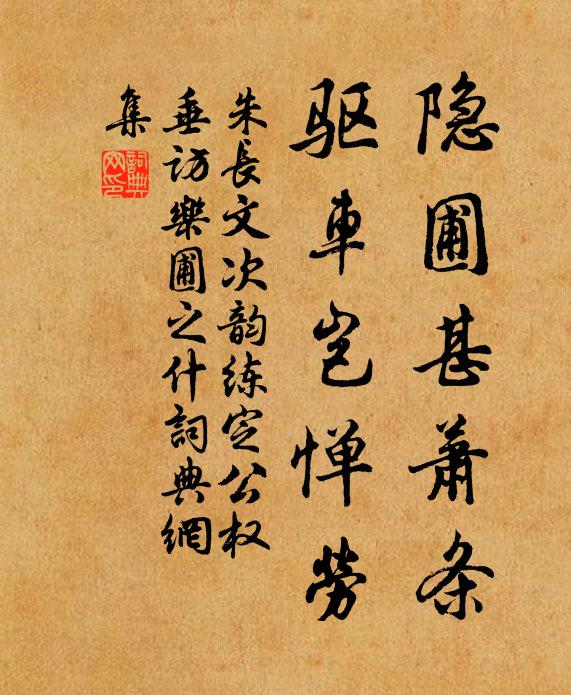 隐圃甚萧条
驱車岂惮劳
朱長文次韵练定公权
垂访樂圃之什詞典網
集
詞典
网印